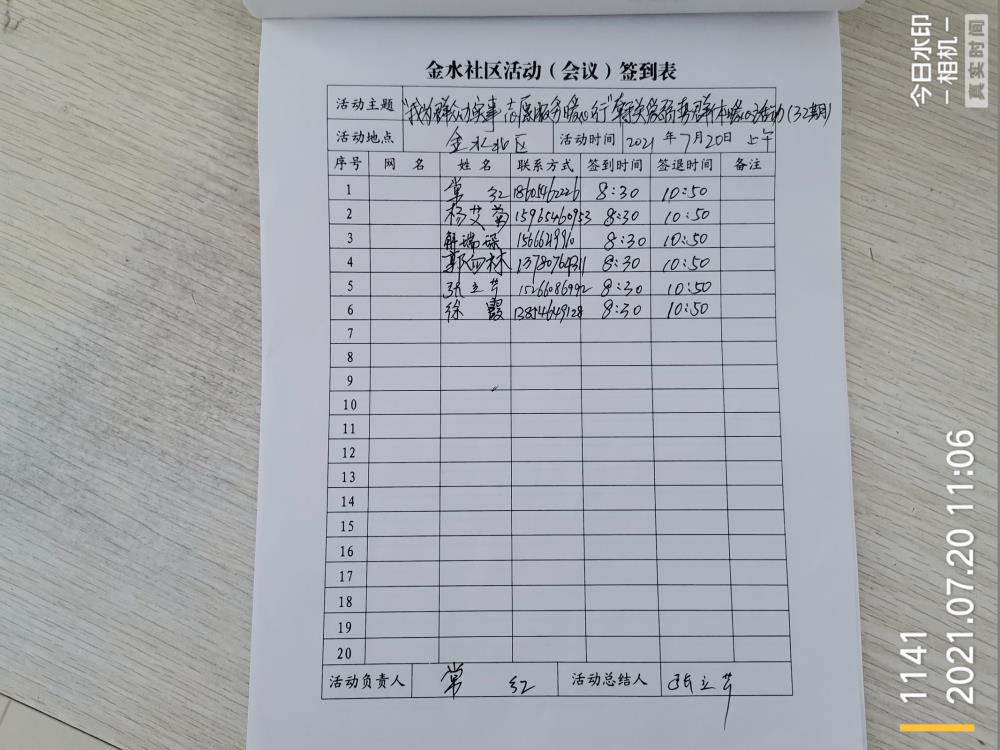 金水社区活动（会议）签到表
活动主题 "我为群众办实事 志愿服务暖心行" 关爱弱势群体暖心活动（32期）
活动地点 金水社区 活动时间 2021年7月20日 上午
序号 网名 姓名 联系方式 签到时间 签退时间 备注
1 常红 18605462226 8:30 10:50
2 杨艾菊 15965460953 8:30 10:50
3 8:30 10:50
4 郭向林 8:30 10:50
5 张立芹 15266086992 8:30 10:50
6 徐霞 13854649128 8:30 10:50
7
8
9
10
11
12
13
14
15
16
17
18
19
20
活动负责人 常红 活动总结人 张立芹
今日水印
相机
真实时间
1141
2021.07.20 11:06